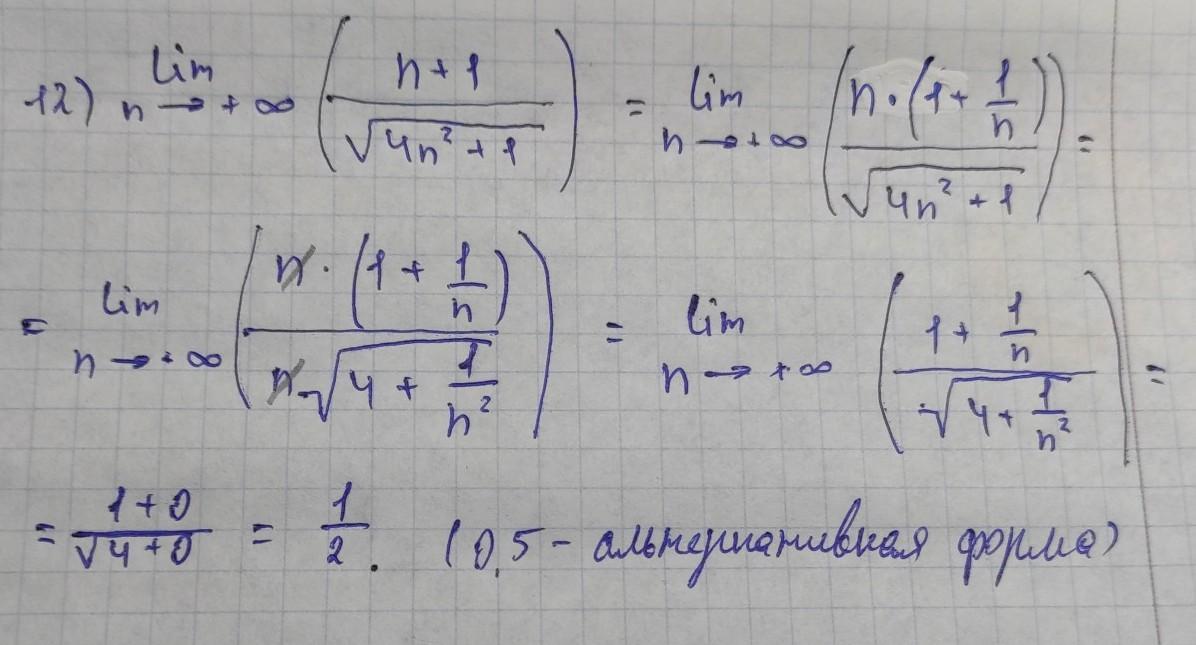 12) lim n→+∞ ( (n+1) / √(4n²+1) ) = lim n→+∞ ( n·(1+1/n) / √(4n²+1) ) =
= lim n→+∞ ( n·(1+1/n) / n·√(4+1/n²) ) = lim n→+∞ ( (1+1/n) / √(4+1/n²) ) =
= (1+0) / √(4+0) = 1/2. (0,5 - альтернативная форма)